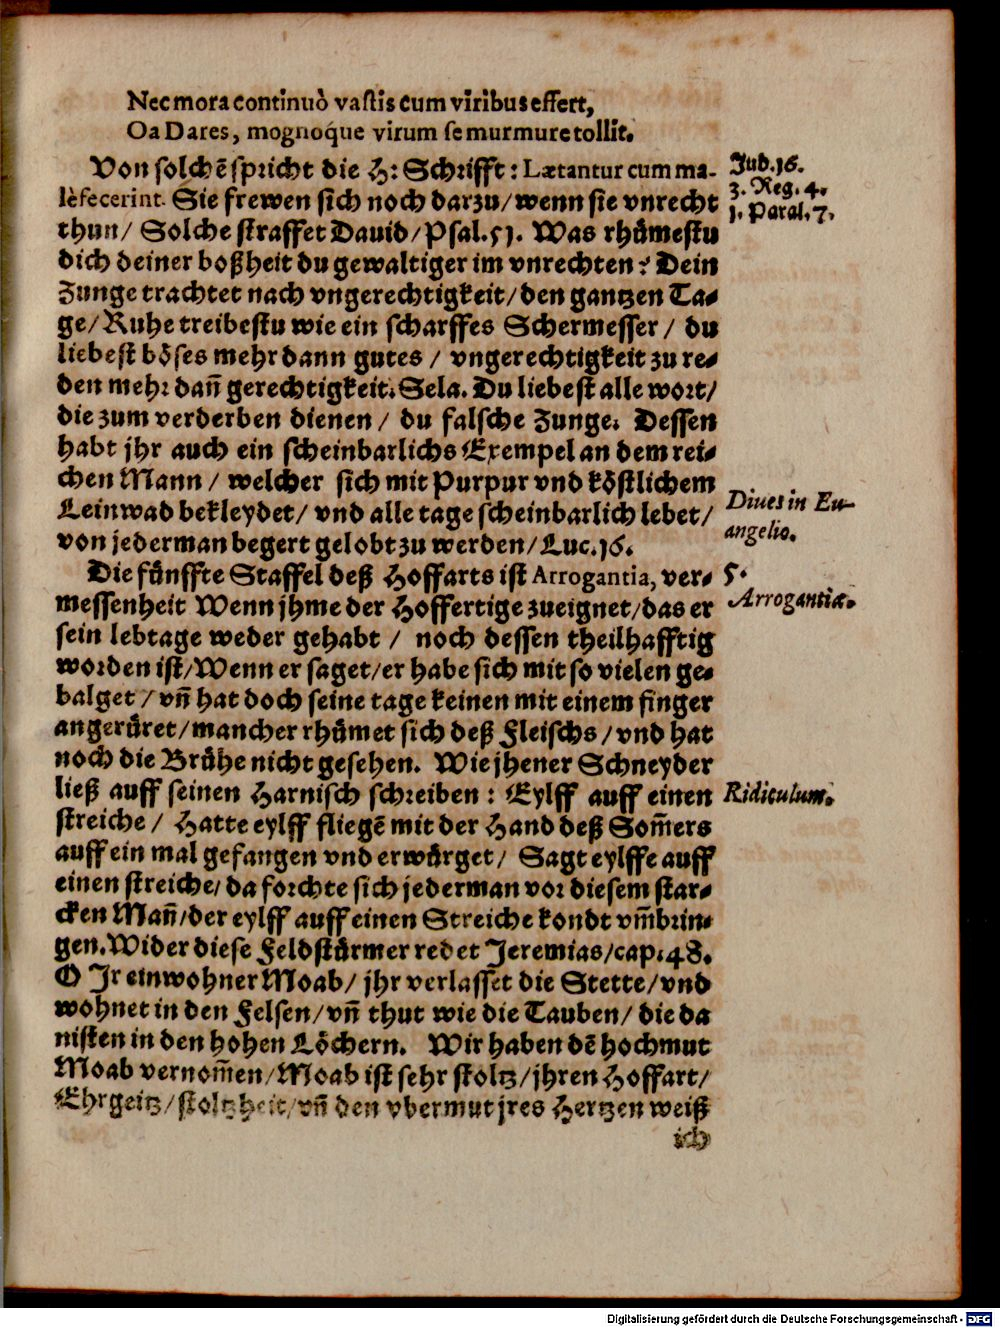 Nec mora continuò vastis cum viribus effert,
Oa Dares, mognoque virum se murmure tollit.
Von solchē spricht die H: Schrifft: Lætantur cum ma-
lèfecerint. Sie frewen sich noch darzu/ wenn sie vnrecht
thun/ Solche straffet Dauid/ Psal. 51. Was rhümestu
dich deiner boßheit du gewaltiger im vnrechten? Dein
Zunge trachtet nach vngerechtigkeit/ den gantzen Ta-
ge/ Ruhe treibestu wie ein scharffes Schermesser/ du
liebest böses mehr dann gutes/ vngerechtigkeit zu re-
den mehr dañ gerechtigkeit. Sela. Du liebest alle wort/
die zum verderben dienen/ du falsche Zunge. Dessen
habt jhr auch ein scheinbarlichs Exempel an dem rei-
chen Mann/ welcher sich mit Purpur vnd köstlichem
Leinwad bekleydet/ vnd alle tage scheinbarlich lebet/
von jederman begert gelobt zu werden/ Luc. 16.
Die fünffte Staffel deß Hoffarts ist Arrogantia, ver-
messenheit Wenn jhme der Hoffertige zueignet/ das er
sein lebtage weder gehabt/ noch dessen theilhafftig
worden ist/ Wenn er saget/ er habe sich mit so vielen ge-
balget/ vñ hat doch seine tage keinen mit einem finger
angerüret/ mancher rhümet sich deß Fleischs/ vnd hat
noch die Brühe nicht gesehen. Wie jhener Schneyder
ließ auff seinen Harnisch schreiben: Eylff auff einen
streiche/ Hatte eylff fliegē mit der Hand deß Som̃ers
auff ein mal gefangen vnd erwürget/ Sagt eylffe auff
einen streiche/ da forchte sich jederman vor diesem star-
cken Mañ/ der eylff auff einen Streiche kondt vm̃brin-
gen. Wider diese Feldstürmer redet Jeremias/ cap. 48.
O Jr einwohner Moab/ jhr verlasset die Stette/ vnd
wohnet in den Felsen/ vñ thut wie die Tauben/ die da
nisten in den hohen Löchern. Wir haben dē hochmut
Moab vernom̃en/ Moab ist sehr stoltz/ jhren Hoffart/
Ehrgeitz/ stoltzheit/ vñ den vbermut jres Hertzen weiß
ich
Jud. 16.
3. Reg. 4.
1. Paral. 7.
Diues in Eu-
angelio.
5.
Arrogantiæ.
Ridiculum.
Digitalisierung gefördert durch die Deutsche Forschungsgemeinschaft - DFG